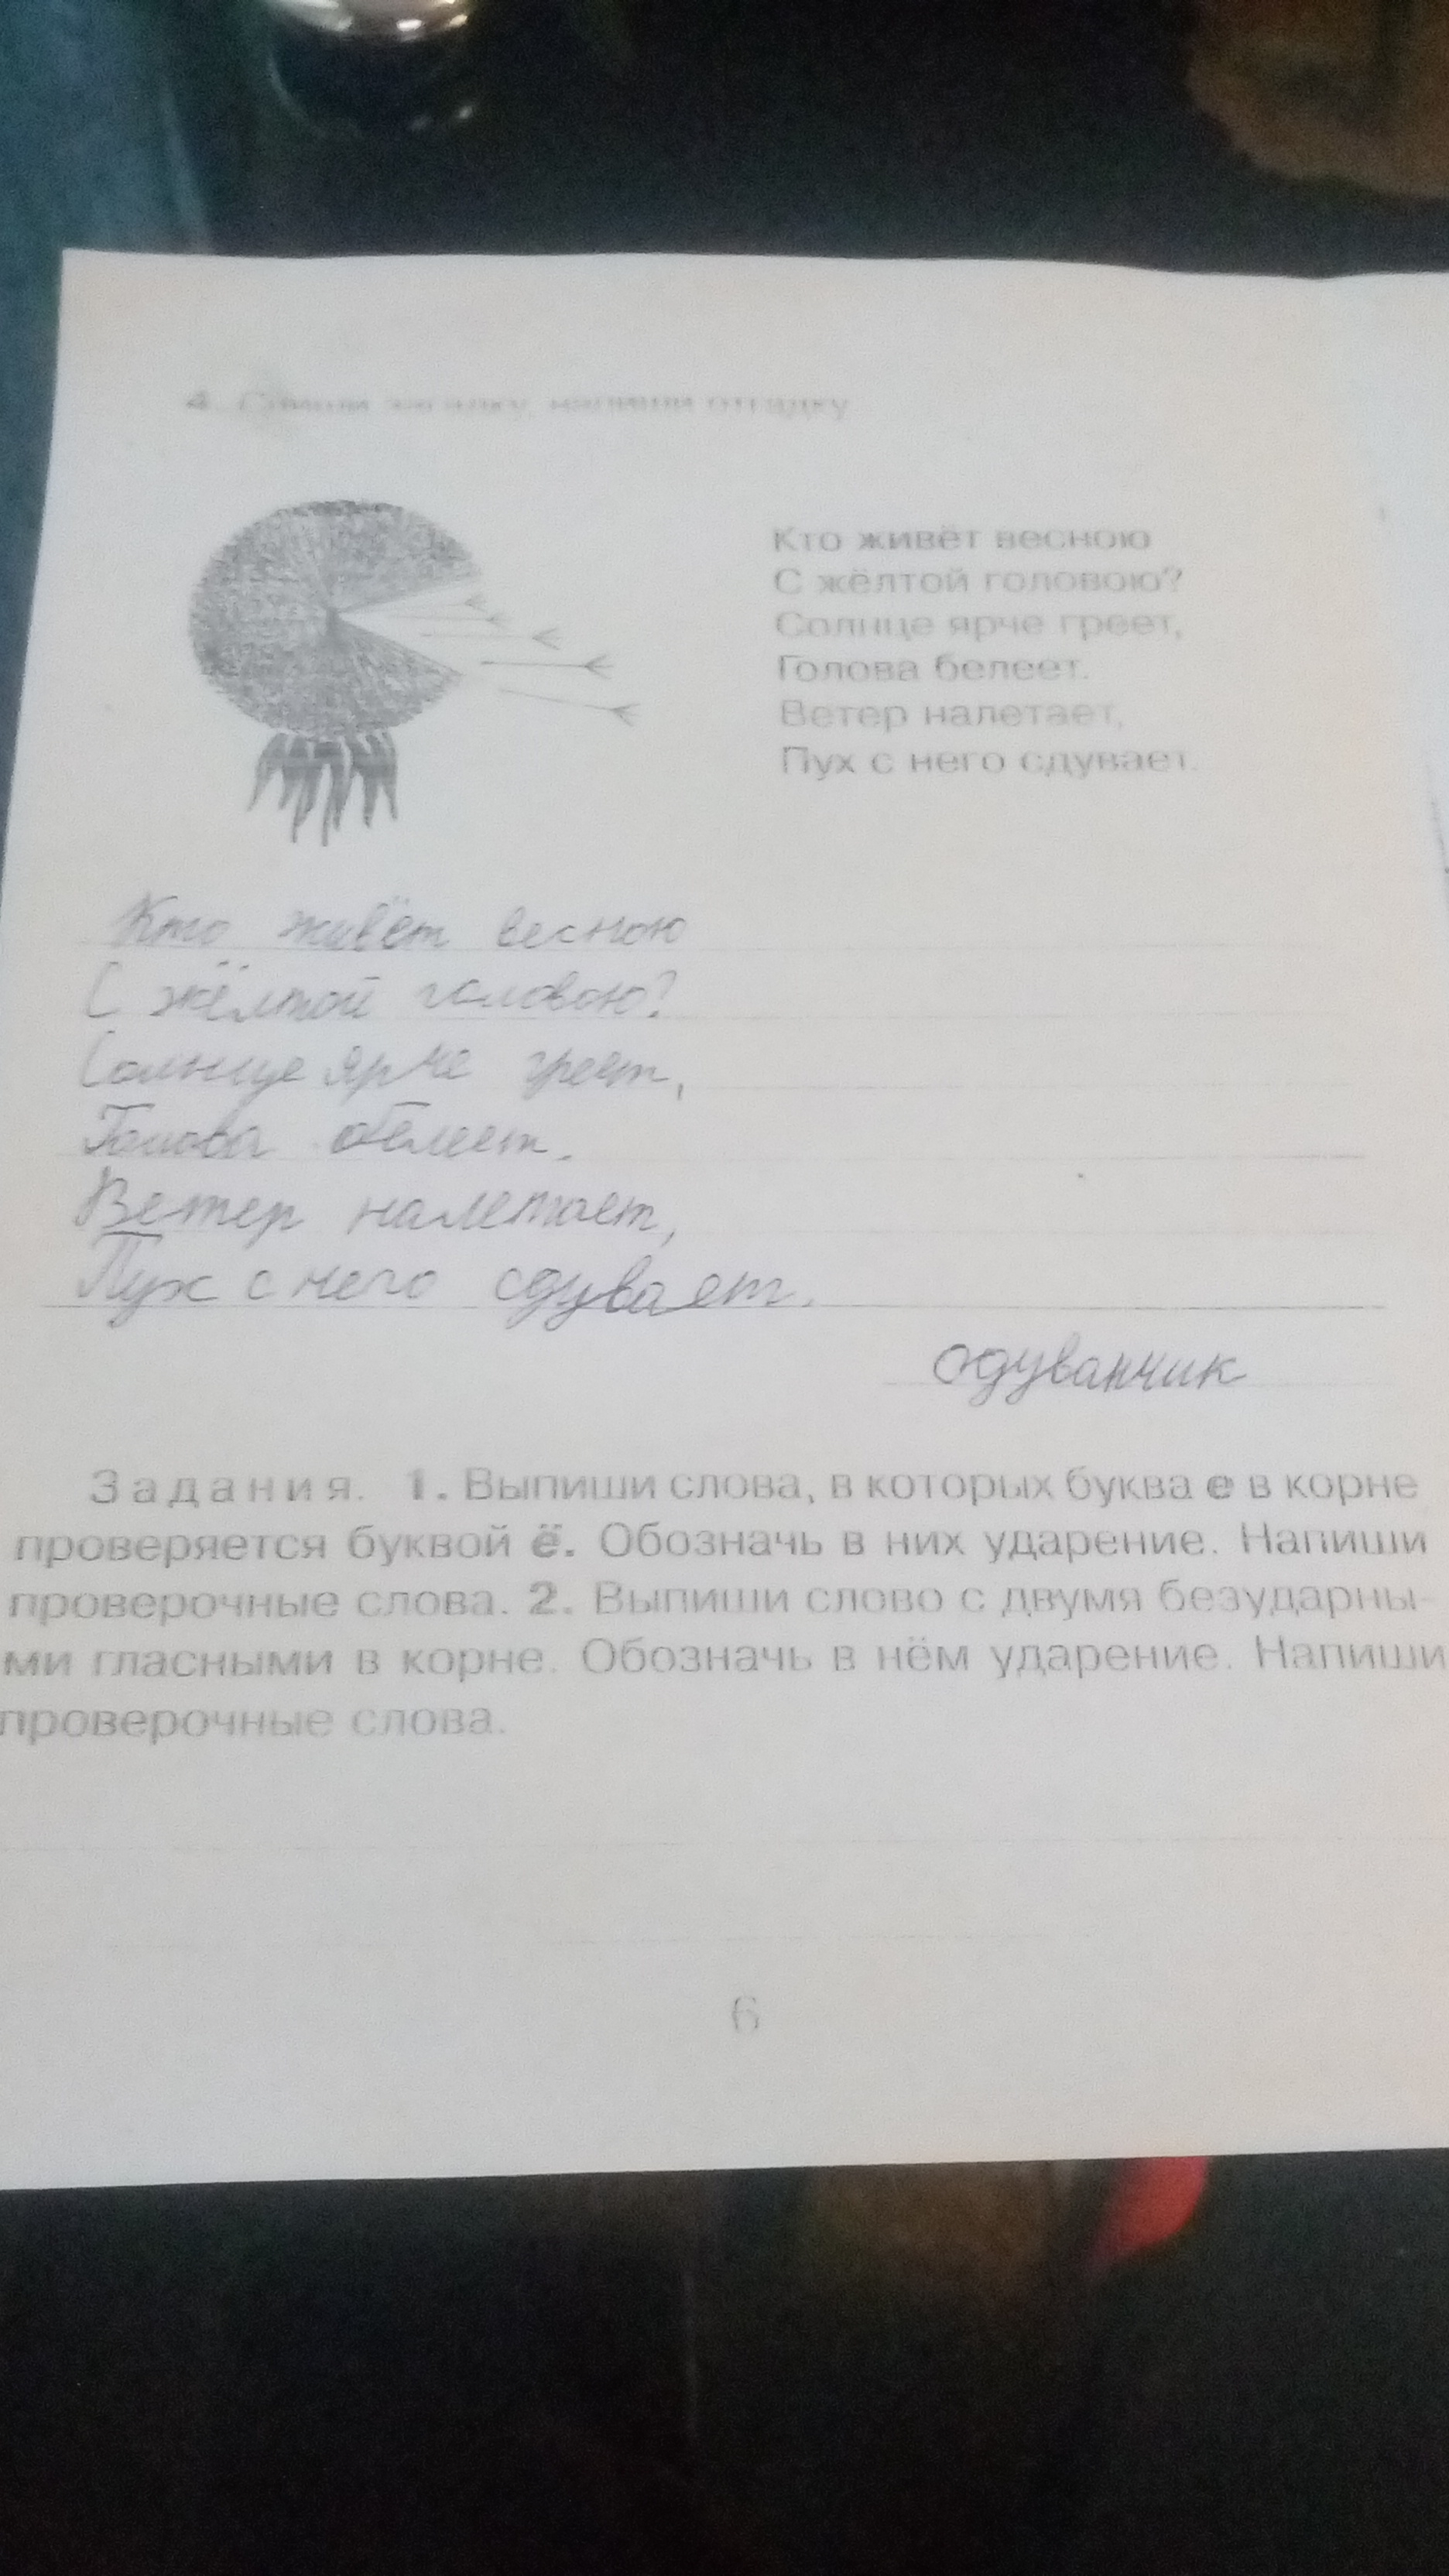 4. Спиши загадку, напиши отгадку.
Кто живёт весною
С жёлтой головою?
Солнце ярче греет,
Голова белеет.
Ветер налетает,
Пух с него сдувает.
Кто живёт весною
С жёлтой головою?
Солнце ярче греет,
Голова белеет.
Ветер налетает,
Пух с него сдувает.
одуванчик
Задания. 1. Выпиши слова, в которых буква е в корне
проверяется буквой ё. Обозначь в них ударение. Напиши
проверочные слова. 2. Выпиши слово с двумя безударны-
ми гласными в корне. Обозначь в нём ударение. Напиши
проверочные слова.
6